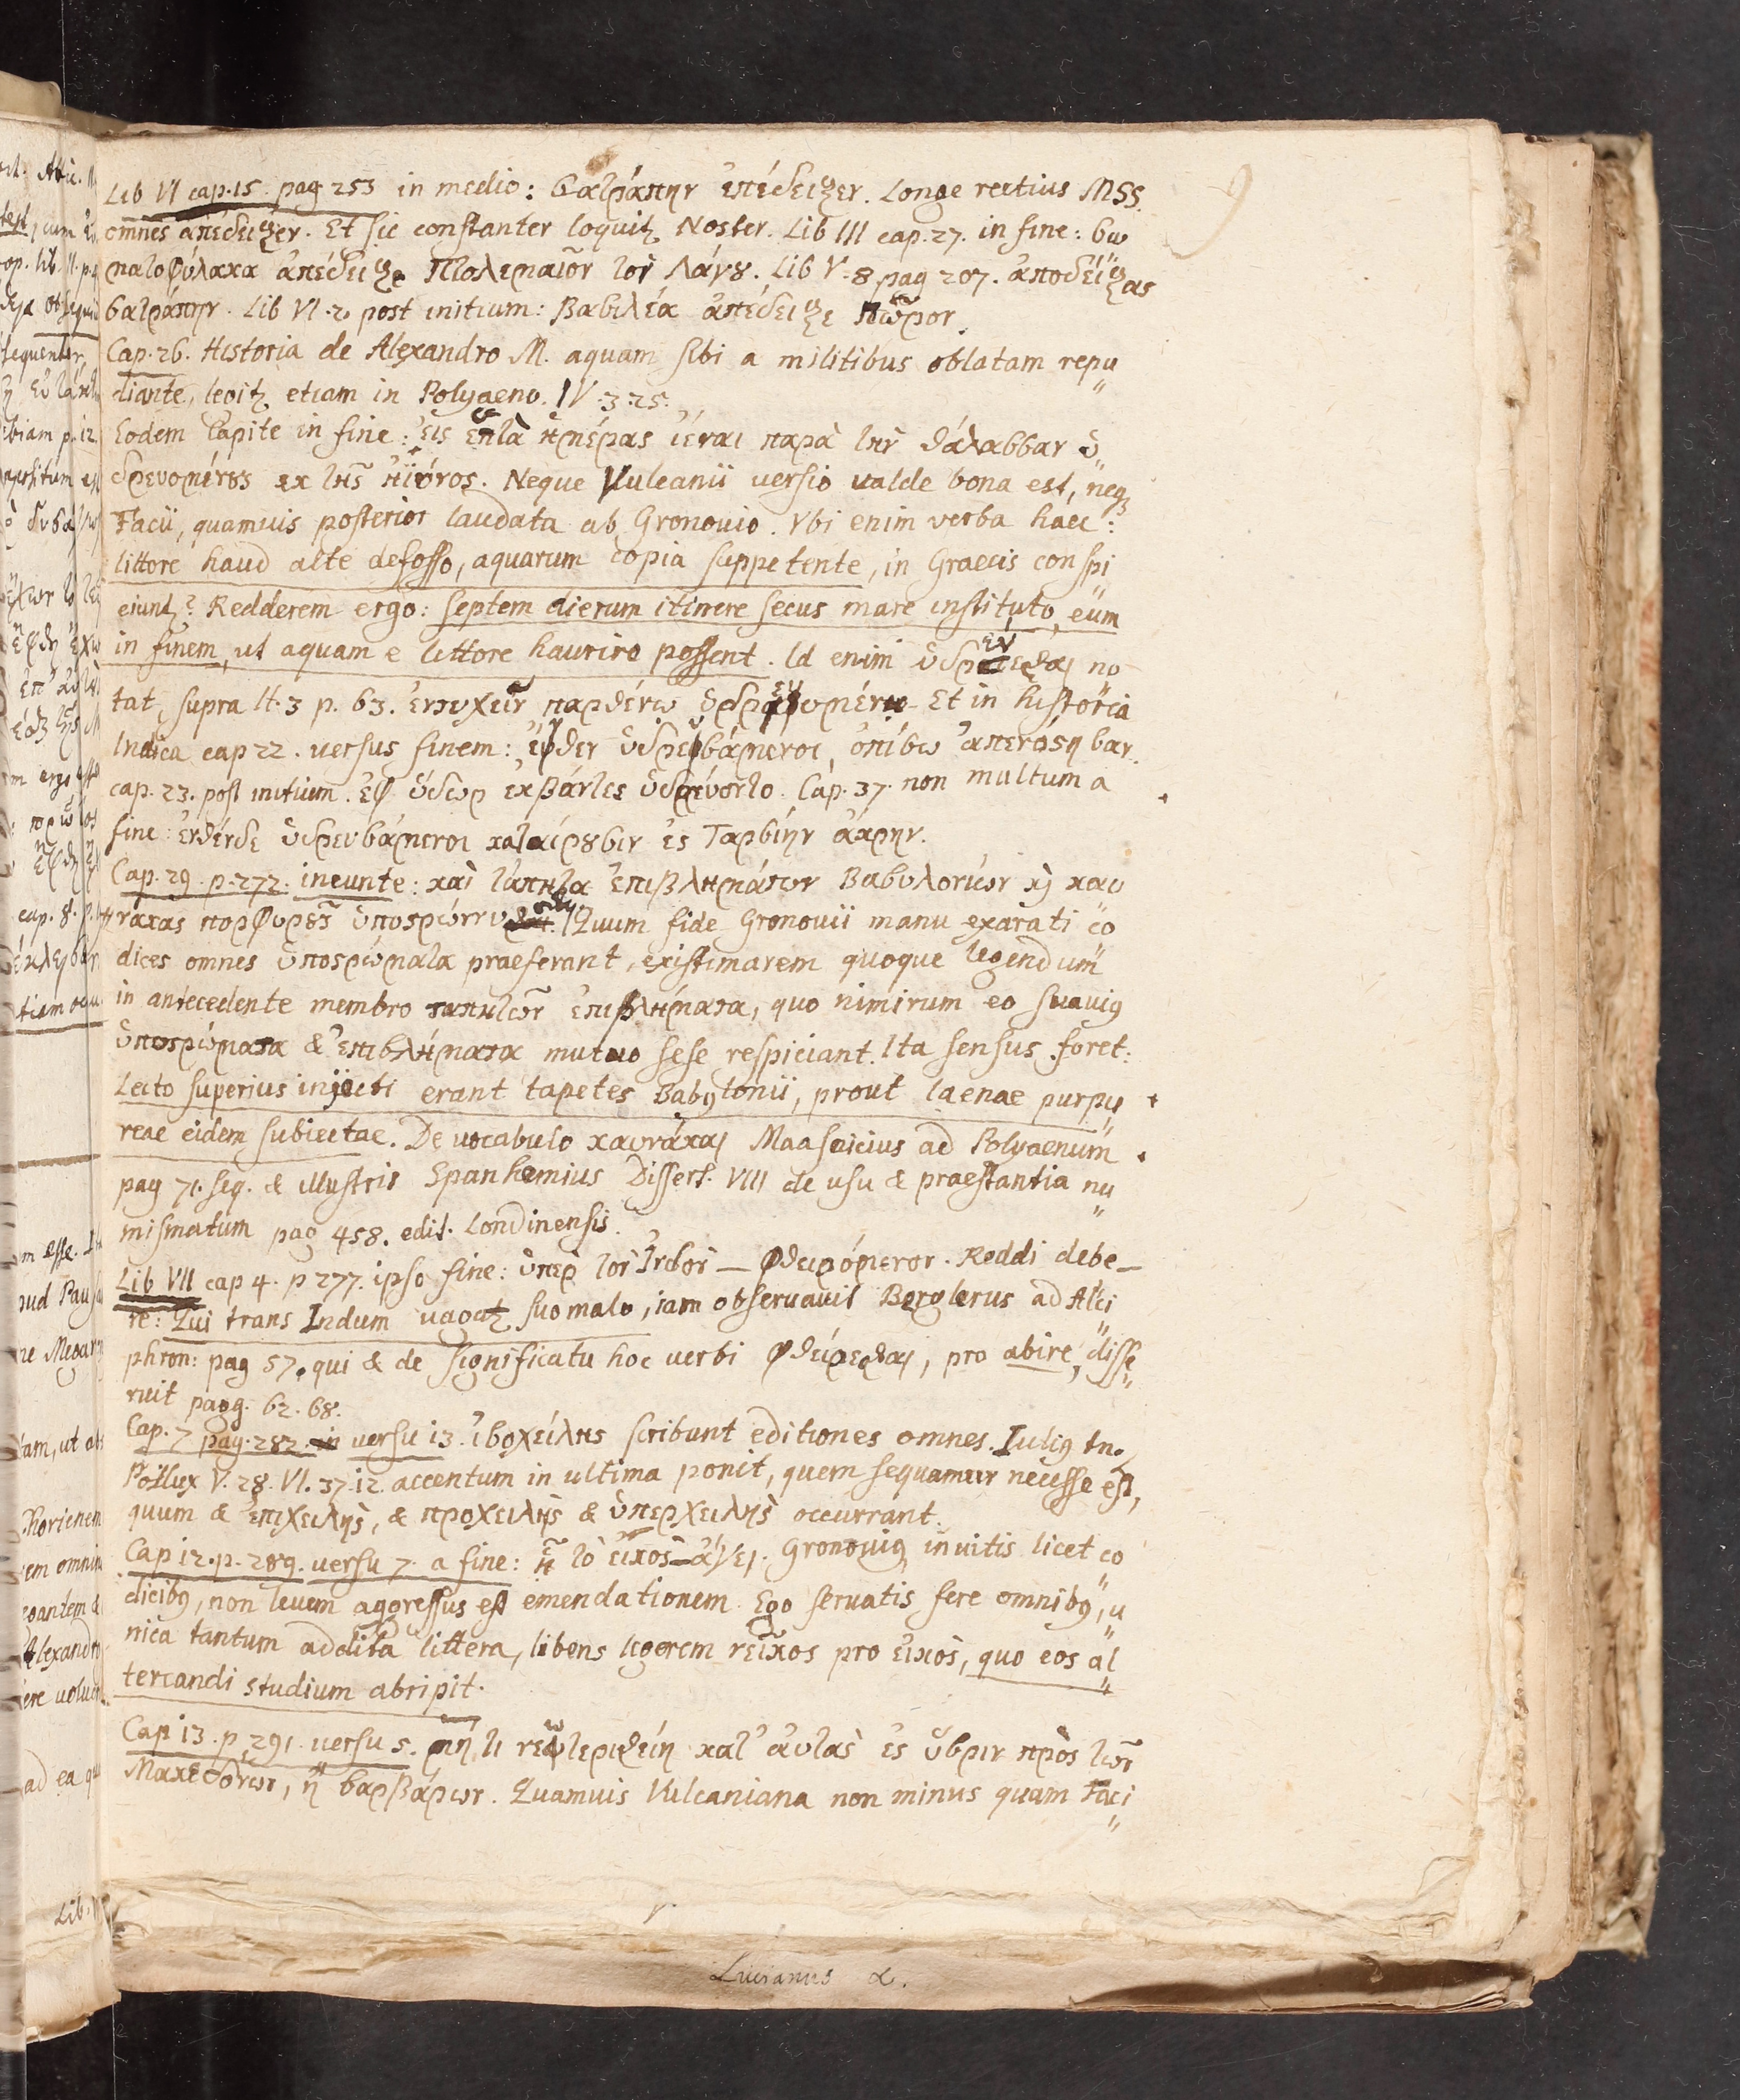 9
Lib VI cap. 15. pag 253 in medio: σατράπην ἐπέδειξεν. Longe rectius MSS.
omnes ἀπέδειξεν. Et sic constanter loquitꝛ Noster. Lib III cap. 27. in fine: σω
ματοφύλακα ἀπέδειξε Πτολεμαῖον τὸν Λάγȣ. Lib V. 8 pag 207. ἀποδείξας
σατράπην. Lib VI. 2. post initium: Βασιλέα ἀπέδειξε Πῶρον.
Cap. 26. Historia de Alexandro M. aquam sibi a militibus oblatam repu„
diante, legitꝛ etiam in Polyaeno. IV. 3. 25.
Eodem Capite in fine: εἰς ἑπτὰ ἡμέρας ἰέναι παρὰ τὴν θάλασσαν ὑ„
δρευομένȣς ἐκ τῆς ἠϊόνος. Neque Vulcanii versio valde bona est, neqꝫ
Facii, quamuis posterior laudata ab Gronouio. Vbi enim verba haec:
littore haud alte defosso, aquarum copia suppetente, in Graecis conspi„
ciuntꝛ? Redderem ergo: septem dierum itinere secus mare instituto, eum
in finem, ut aquam e littore haurire possent. Id enim ὑδρεύεσθαι no
tat, supra II. 3 p. 63. ἐντυχεῖν παρθένω ὑδρευομένῳ Et in historia
Indica cap 22. versus finem: ἔνθεν ὑδρευσάμενοι, ὀπίσω ἀπενόστησαν.
cap. 23. post initium. ἐφ ὕδωρ ἐκβάντες ὑδρεύοντο. Cap. 37. non multum a
fine: ἐνθένδε ὑδρευσάμενοι καταίρȣσιν ἐς Ταρσίην ἄκρην.
Cap. 29. p. 272. ineunte: καὶ τάπητα ἐπιβλημάτων Βαβυλονίων κὶ καυ
νάκας πορφυρȣ͂ς ὑποστρώννυσθαι. Quum fide Gronouii manu exarati co„
dices omnes ὑποστρώματα praeferant, existimarem quoque legendum
in antecedente membro ταπητῶν ἐπιβλήματα, quo nimirum eo suauiꝰ
ὑποστρώματα & ἐπιβλήματα mutuo sese respiciant. Ita sensus foret:
Lecto superius injecti erant tapetes Babylonii, prout laenae purpu„
reae eidem subiectae. De vocabulo καυνάκαι Maasuicius ad Polyaenum
pag 71. seq. & illustris Spanhemius Dissert. VIII de usu & praestantia nu„
mismatum pag 458. edit. Londinensis.
Lib VII cap 4. p 277. ipso fine: ὑπὲρ τὸν Ἰνδὸν — φθειρόμενον. Reddi debe—
re: Qui trans Indum vagatꝛ suo malo, iam obseruauit Berglerus ad Alci„
phron: pag 57. qui & de significatu hoc verbi φθείρεσθαι, pro abire, disse„
ruit pagg. 62. 68.
Cap. 7 pag. 282. versu 13. ἰσοχείλης scribunt editiones omnes. Iuliꝰ tn.
Pollux V. 28. VI. 37. 12. accentum in ultima ponit, quem sequamur necesse est,
quum & ἐπιχειλὴς, & προχειλὴς & ὑπερχειλὴς occurrant.
Cap 12. p. 289. versu 7. a fine: ᾗ τὸ εἰκὸς ἄγει. Gronouiꝰ, inuitis licet co„
dicibꝰ, non leuem aggressus est emendationem. Ego seruatis fere omnibꝰ, u„
nica tantum addita littera, libens legerem νεῖκος pro εἰκὸς, quo eos al„
tercandi studium abripit.
Cap 13. p. 291. versu 5. μή τι νεωτερισθείη κατ’ αὐτὰς ἐς ὕβριν πρὸς τῶν
Μακεδόνων, ἢ βαρβάρων. Quamuis Vulcaniana non minus quam Faci„
Lucianus &.